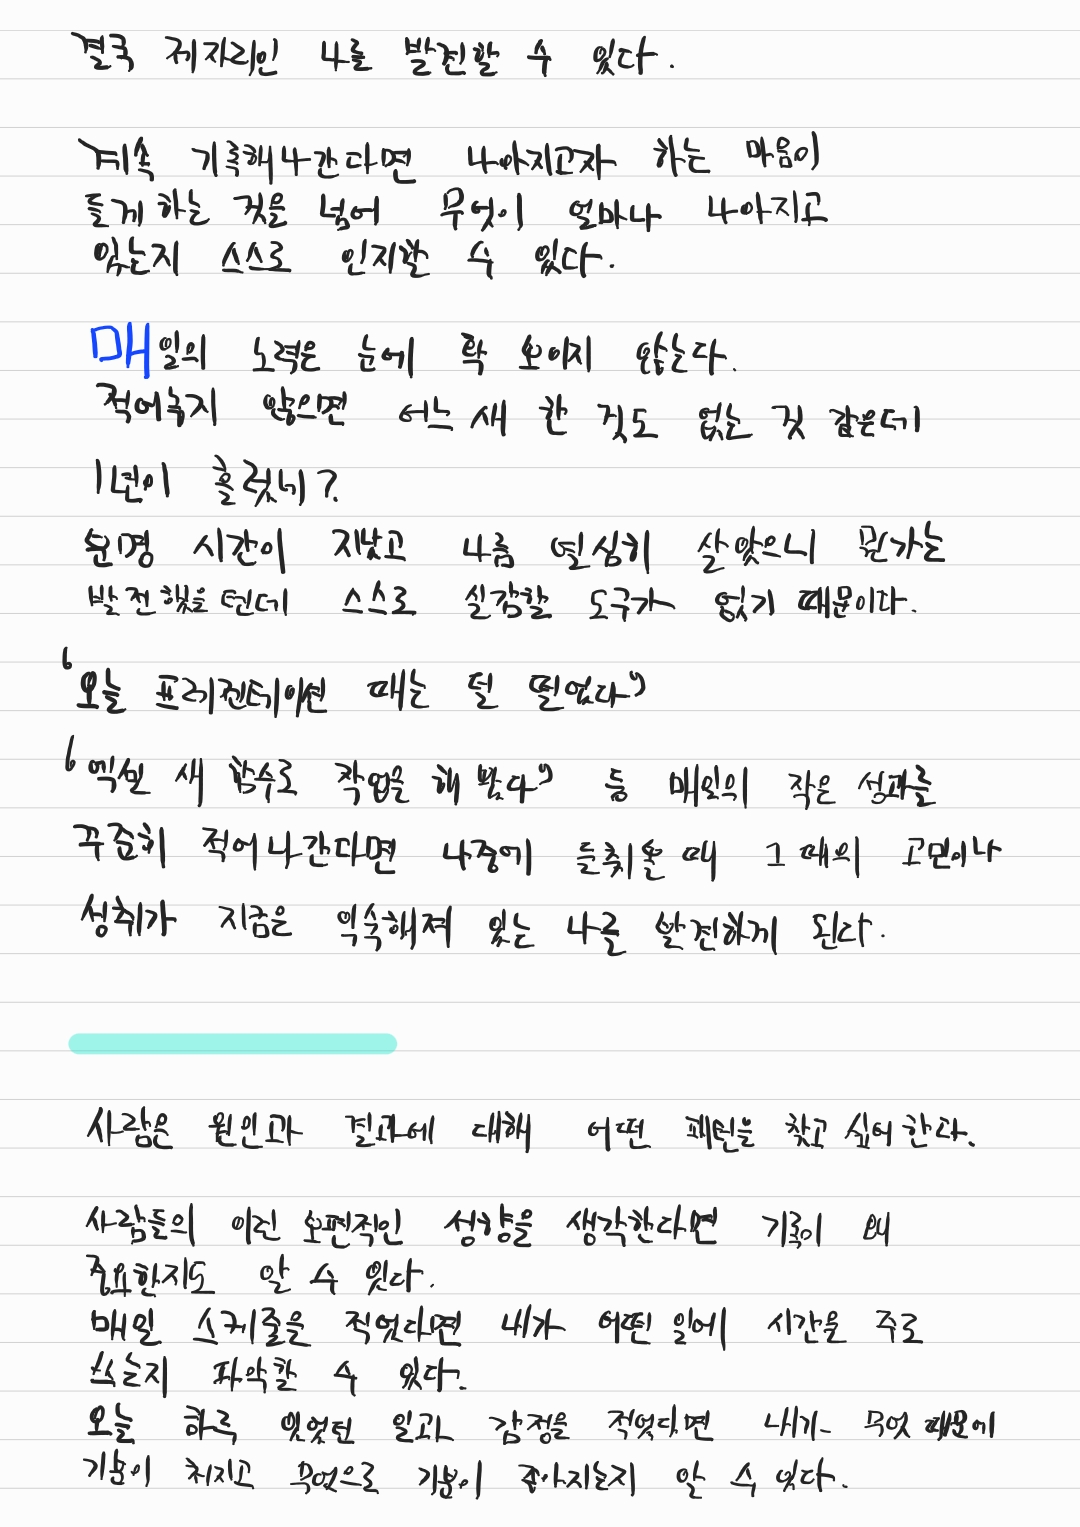 결국 제자리인 나를 발견할 수 있다.
계속 기록해나간다면 나아지고자 하는 마음이
들게 하는 것을 넘어 무엇이 얼마나 나아지고
있는지 스스로 인지할 수 있다.
매일의 노력은 눈에 확 보이지 않는다.
적어놓지 않으면 어느 새 한 것도 없는 것 같은데
1년이 흘렀네?
분명 시간이 지났고 나름 열심히 살았으니 뭔가는
발전했을텐데 스스로 실감할 도구가 없기 때문이다.
‘오늘 프레젠테이션 때는 덜 떨었다”
‘엑셀 새 함수로 작업을 해 봤다” 등 매일의 작은 성과를
꾸준히 적어나간다면 나중에 들춰볼 때 그 때의 고민이나
성취가 지금은 익숙해져 있는 나를 발견하게 된다.
사람은 원인과 결과에 대해 어떤 패턴을 찾고 싶어한다.
사람들의 이런 보편적인 성향을 생각한다면 기록이 왜
중요한지도 알 수 있다.
매일 스케줄을 적었다면 내가 어떤 일에 시간을 주로
쓰는지 파악할 수 있다.
오늘 하루 있었던 일과 감정을 적었다면 내가 무엇 때문에
기분이 쳐지고 무엇으로 기분이 좋아지는지 알 수 있다.